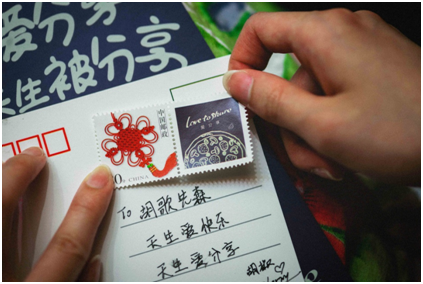 爱分享
天生被分享
中国邮政
CHINA
Love to share
To 胡歌先森
天生爱快乐
天生爱分享